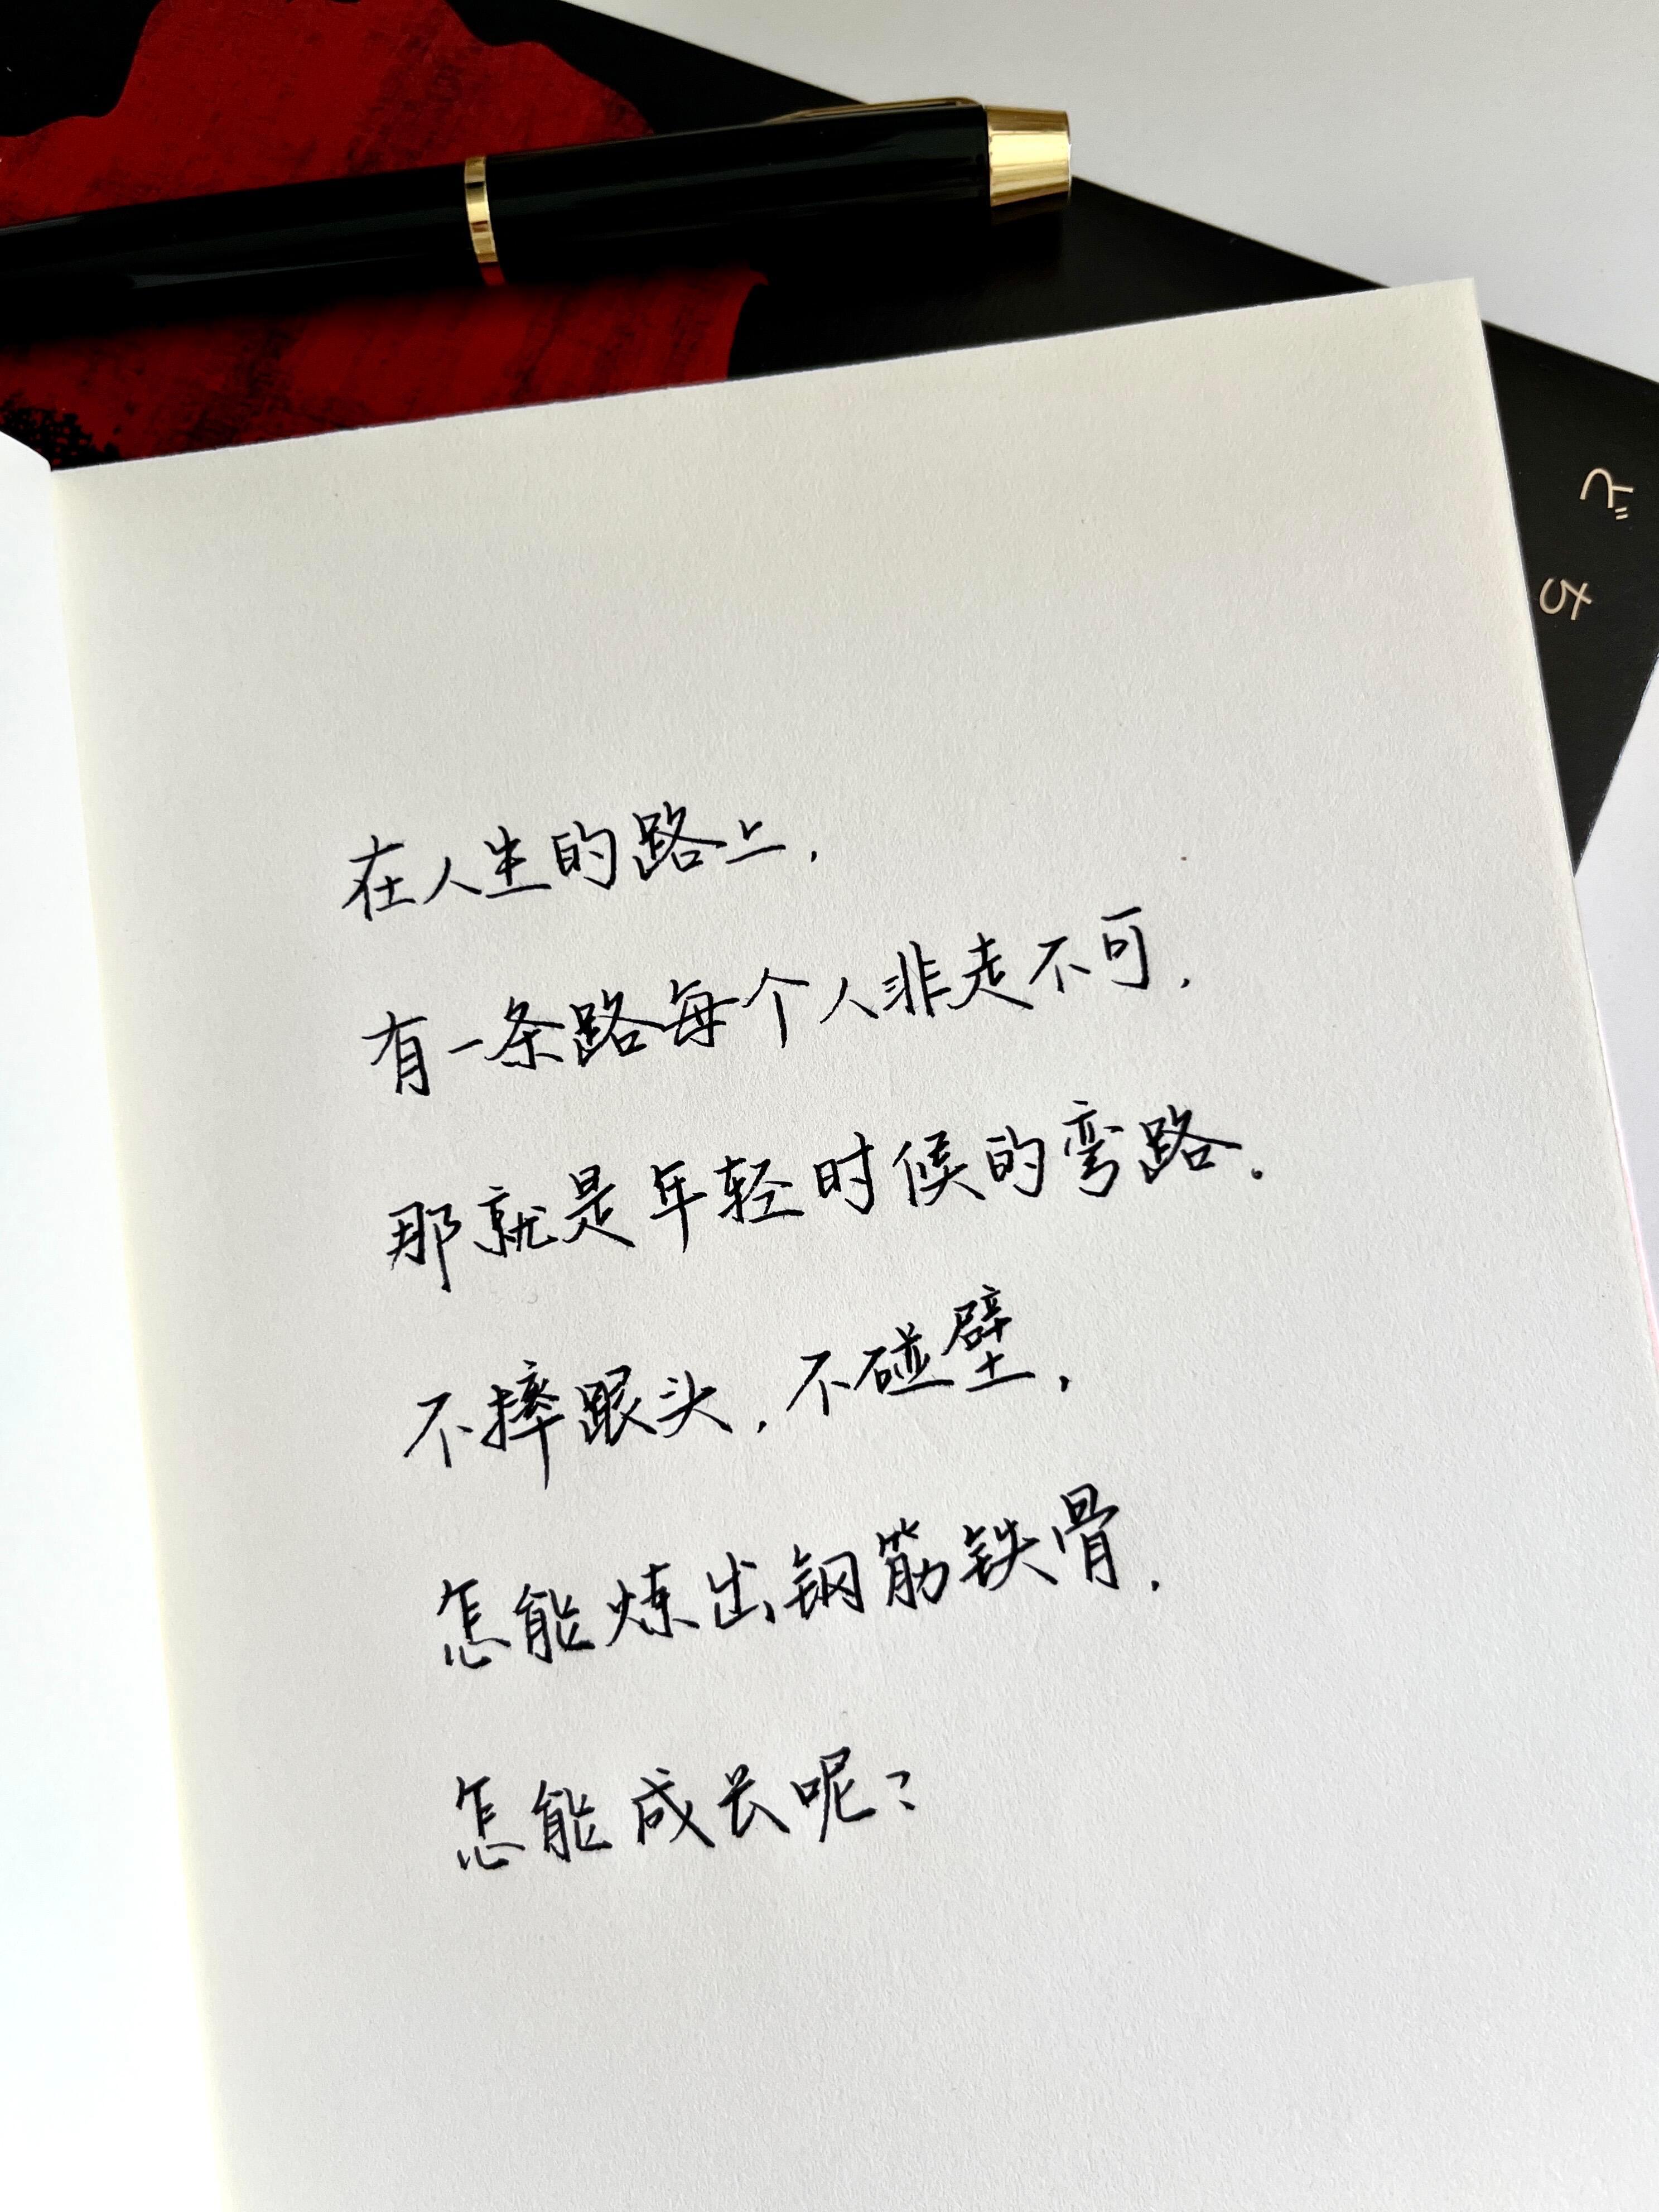 在人生的路上,
有一条路每个人非走不可,
那就是年轻时候的弯路.
不摔跟头,不碰壁,
怎能炼出钢筋铁骨,
怎能成长呢?